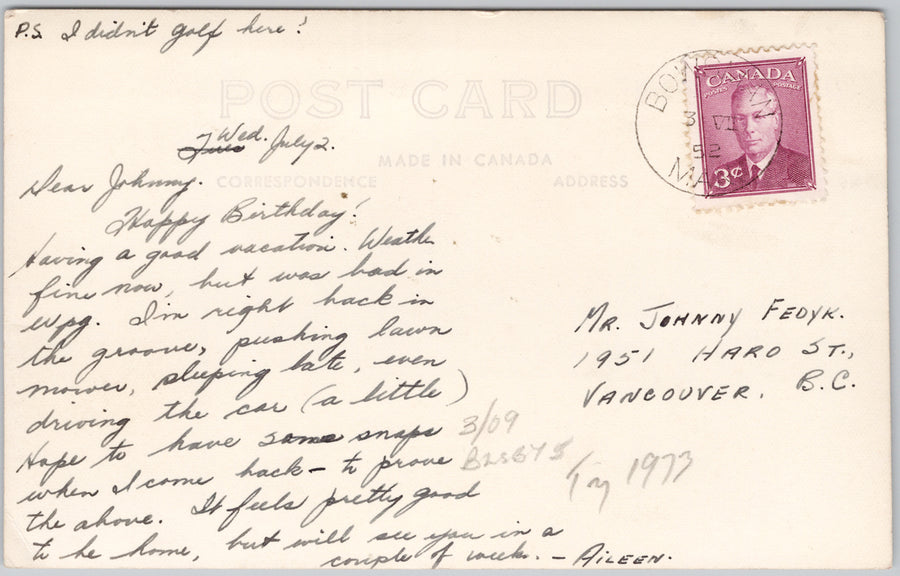 P.S. I didn't golf here!
POST CARD
Tues Wed. July 2.
MADE IN CANADA
CORRESPONDENCE
ADDRESS
CANADA
POSTES POSTAGE
3¢
3 VII
52
MAN
Dear Johnny.
Happy Birthday!
Having a good vacation. Weather
fine now, but was bad in
wpg. I'm right back in
the groove, pushing lawn
mower, sleeping late, even
driving the car (a little)
Hope to have some snaps
when I come back – to prove
the above. It feels pretty good
to be home, but will see you in a
couple of weeks. – AILEEN.
MR. JOHNNY FEDYK.
1951 HARO ST.,
VANCOUVER. B.C.
3/09
1973